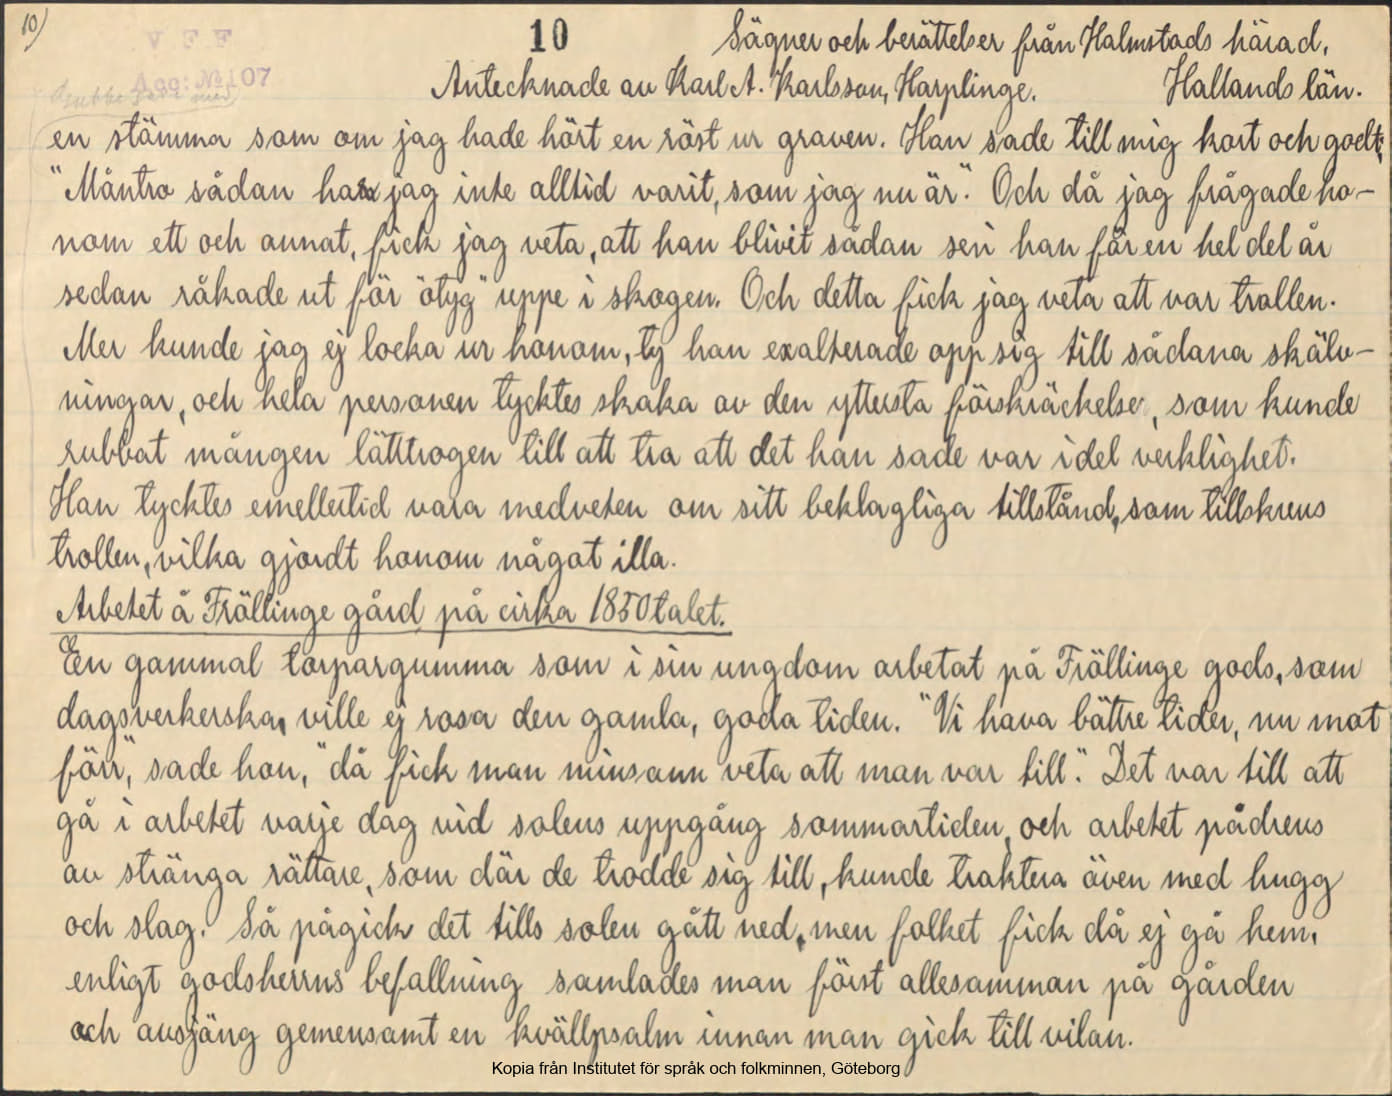 10)
V F F
10
Sägner och berättelser från Halmstads härad,
Acc: № 107
Antecknade av Karl A. Karlsson, Harplinge. Hallands län.
en stämma som om jag hade hört en röst ur graven. Han sade till mig kort och godt:
"Måntro sådan har jag inte alltid varit, som jag nu är". Och då jag frågade ho-
nom ett och annat, fick jag veta, att han blivit sådan sen han för en hel del år
sedan råkade ut för "otyg" uppe i skogen. Och detta fick jag veta att var trollen.
Mer kunde jag ej locka ur honom, ty han exalterade opp sig till sådana skälv-
ningar, och hela personen tycktes skaka av den yttersta förskräckelse, som kunde
rubbat mången lätttrogen till att tro att det han sade var idel verklighet.
Han tycktes emellertid vara medveten om sitt beklagliga tillstånd, som tillskrevs
trollen, vilka gjordt honom något illa.
Arbetet å Fröllinge gård på cirka 1850talet.
En gammal torpargumma som i sin ungdom arbetat på Fröllinge gods, som
dagsverkerska, ville ej rosa den gamla, goda tiden. "Vi hava bättre tider, nu mot
förr", sade hon, "då fick man minsann veta att man var till". Det var till att
gå i arbetet varje dag vid solens uppgång sommartiden, och arbetet pådrevs
av stränga rättare, som där de trodde sig till, kunde traktera även med hugg
och slag. Så pågick det tills solen gått ned, men folket fick då ej gå hem,
enligt godsherrns befallning samlades man först allesamman på gården
och avsjäng gemensamt en kvällpsalm innan man gick till vilan.
Kopia från Institutet för språk och folkminnen, Göteborg